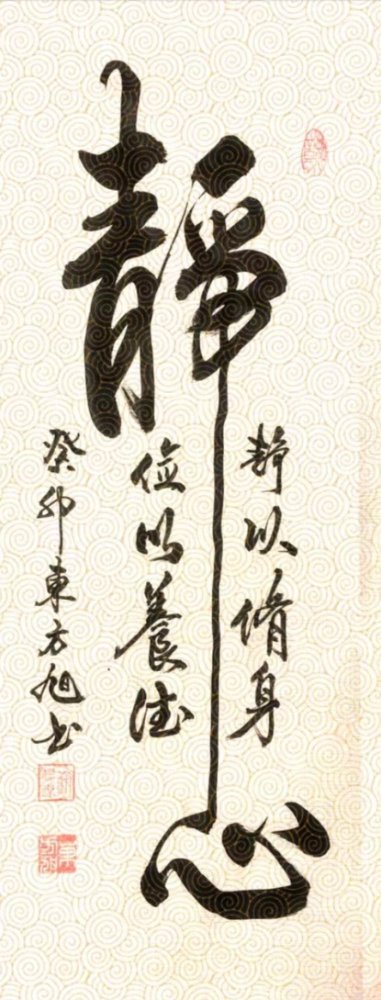 靜心
靜以脩身
儉以養德
癸卯東方旭书